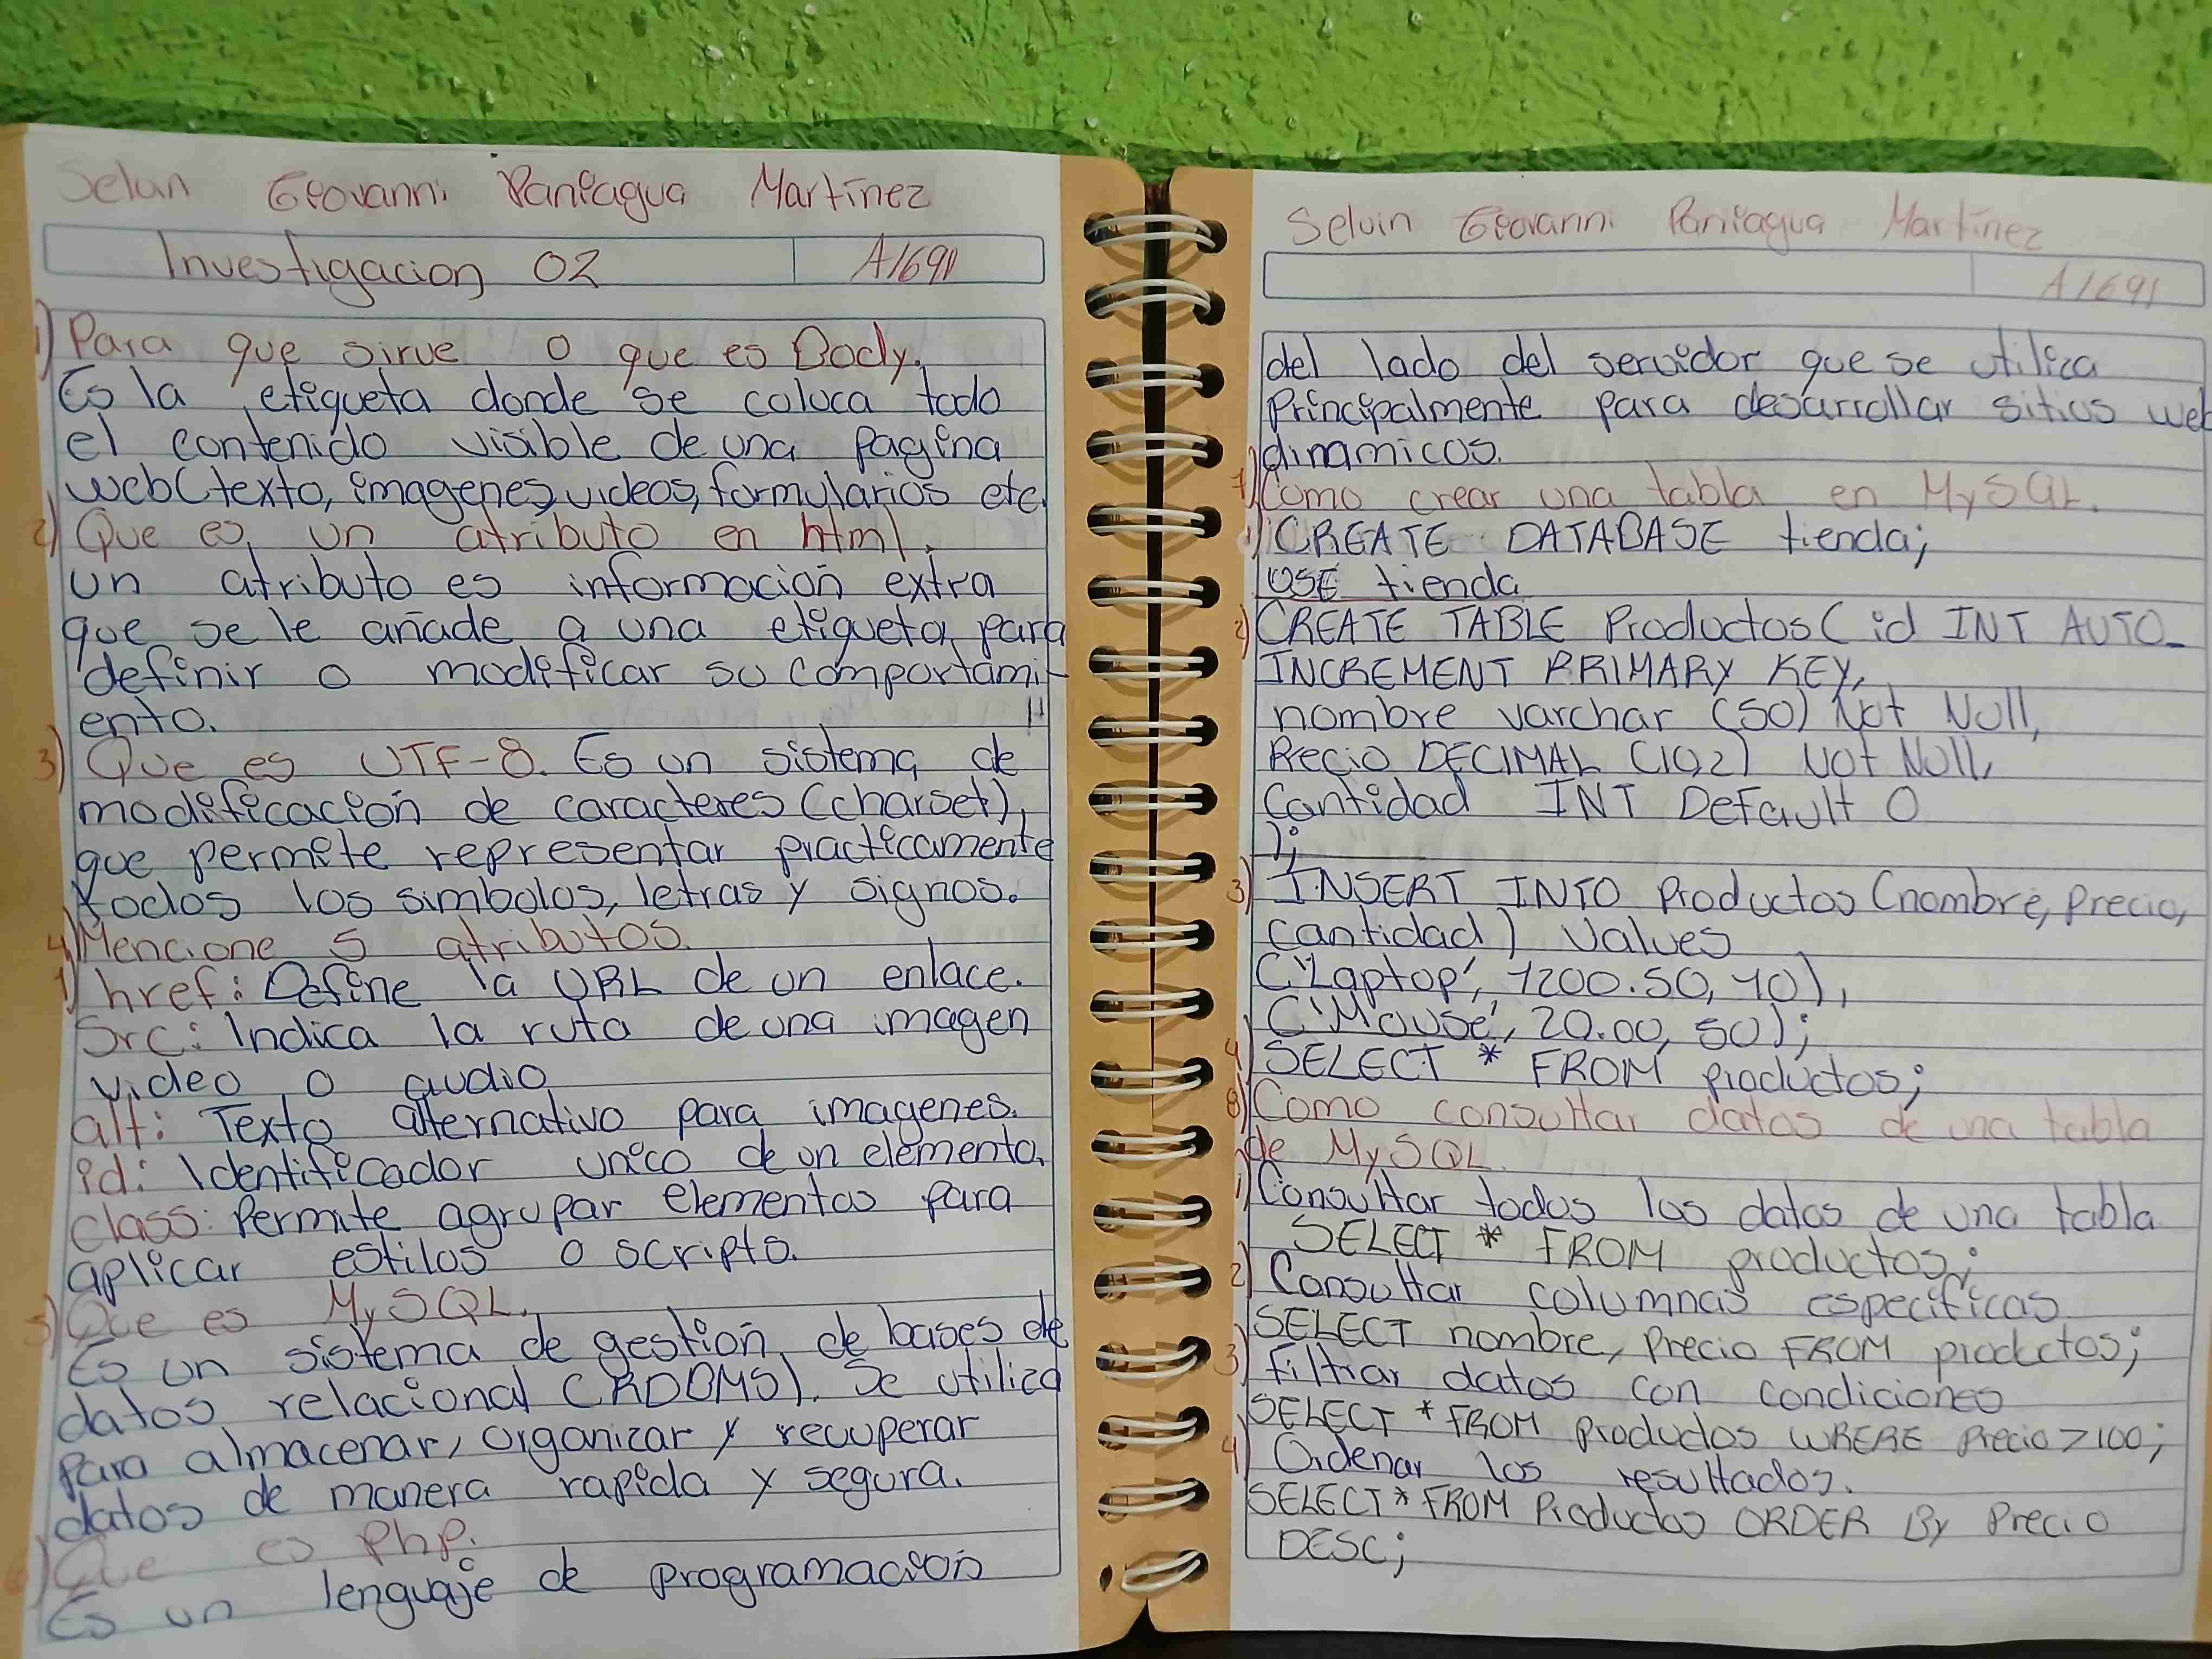 Selvin Geovanni Paniagua Martínez
Investigacion 02 A1691
1) Para que sirve o que es Body.
Es la etiqueta donde se coloca todo
el contenido visible de una pagina
web(texto, imagenes, videos, formularios etc.
2) Que es un atributo en html.
un atributo es información extra
que se le añade a una etiqueta para
definir o modificar su comportami-
ento.
3) Que es UTF-8. Es un sistema de
modificación de caracteres (charset),
que permite representar practicamente
todos los simbolos, letras y signos.
4) Mencione 5 atributos.
1) href: Define la URL de un enlace.
Src: Indica la ruta de una imagen
video o audio
alt: Texto alternativo para imagenes.
id: Identificador unico de un elemento.
class: Permite agrupar elementos para
aplicar estilos o scripts.
5) Que es MySQL.
Es un sistema de gestión de bases de
datos relacional (RDBMS). Se utiliza
para almacenar, organizar y recuperar
datos de manera rapida y segura.
6) Que es Php.
Es un lenguaje de programación
Selvin Geovanni Paniagua Martínez
A1691
del lado del servidor que se utiliza
Principalmente para desarrollar sitios web
dinamicos.
7) Como crear una tabla en MySQL.
1) CREATE DATABASE tienda;
USE tienda
2) CREATE TABLE Productos ( id INT AUTO_
INCREMENT PRIMARY KEY,
nombre varchar (50) Not Null,
Precio DECIMAL (10,2) Not Null,
Cantidad INT Default 0
);
3) INSERT INTO Productos (nombre, precio,
cantidad) Values
('Laptop', 1200.50, 10),
('Mouse', 20.00, 50);
4) SELECT * FROM productos;
8) Como consultar datos de una tabla
de MySQL.
1) Consultar todos los datos de una tabla
SELECT * FROM productos;
2) Consultar columnas especificas.
SELECT nombre, Precio FROM prodcctos;
3) filtrar datos con condiciones
SELECT * FROM Productos WHERE Precio > 100;
4) Ordenar los resultados.
SELECT * FROM Productos ORDER By Precio
DESC;